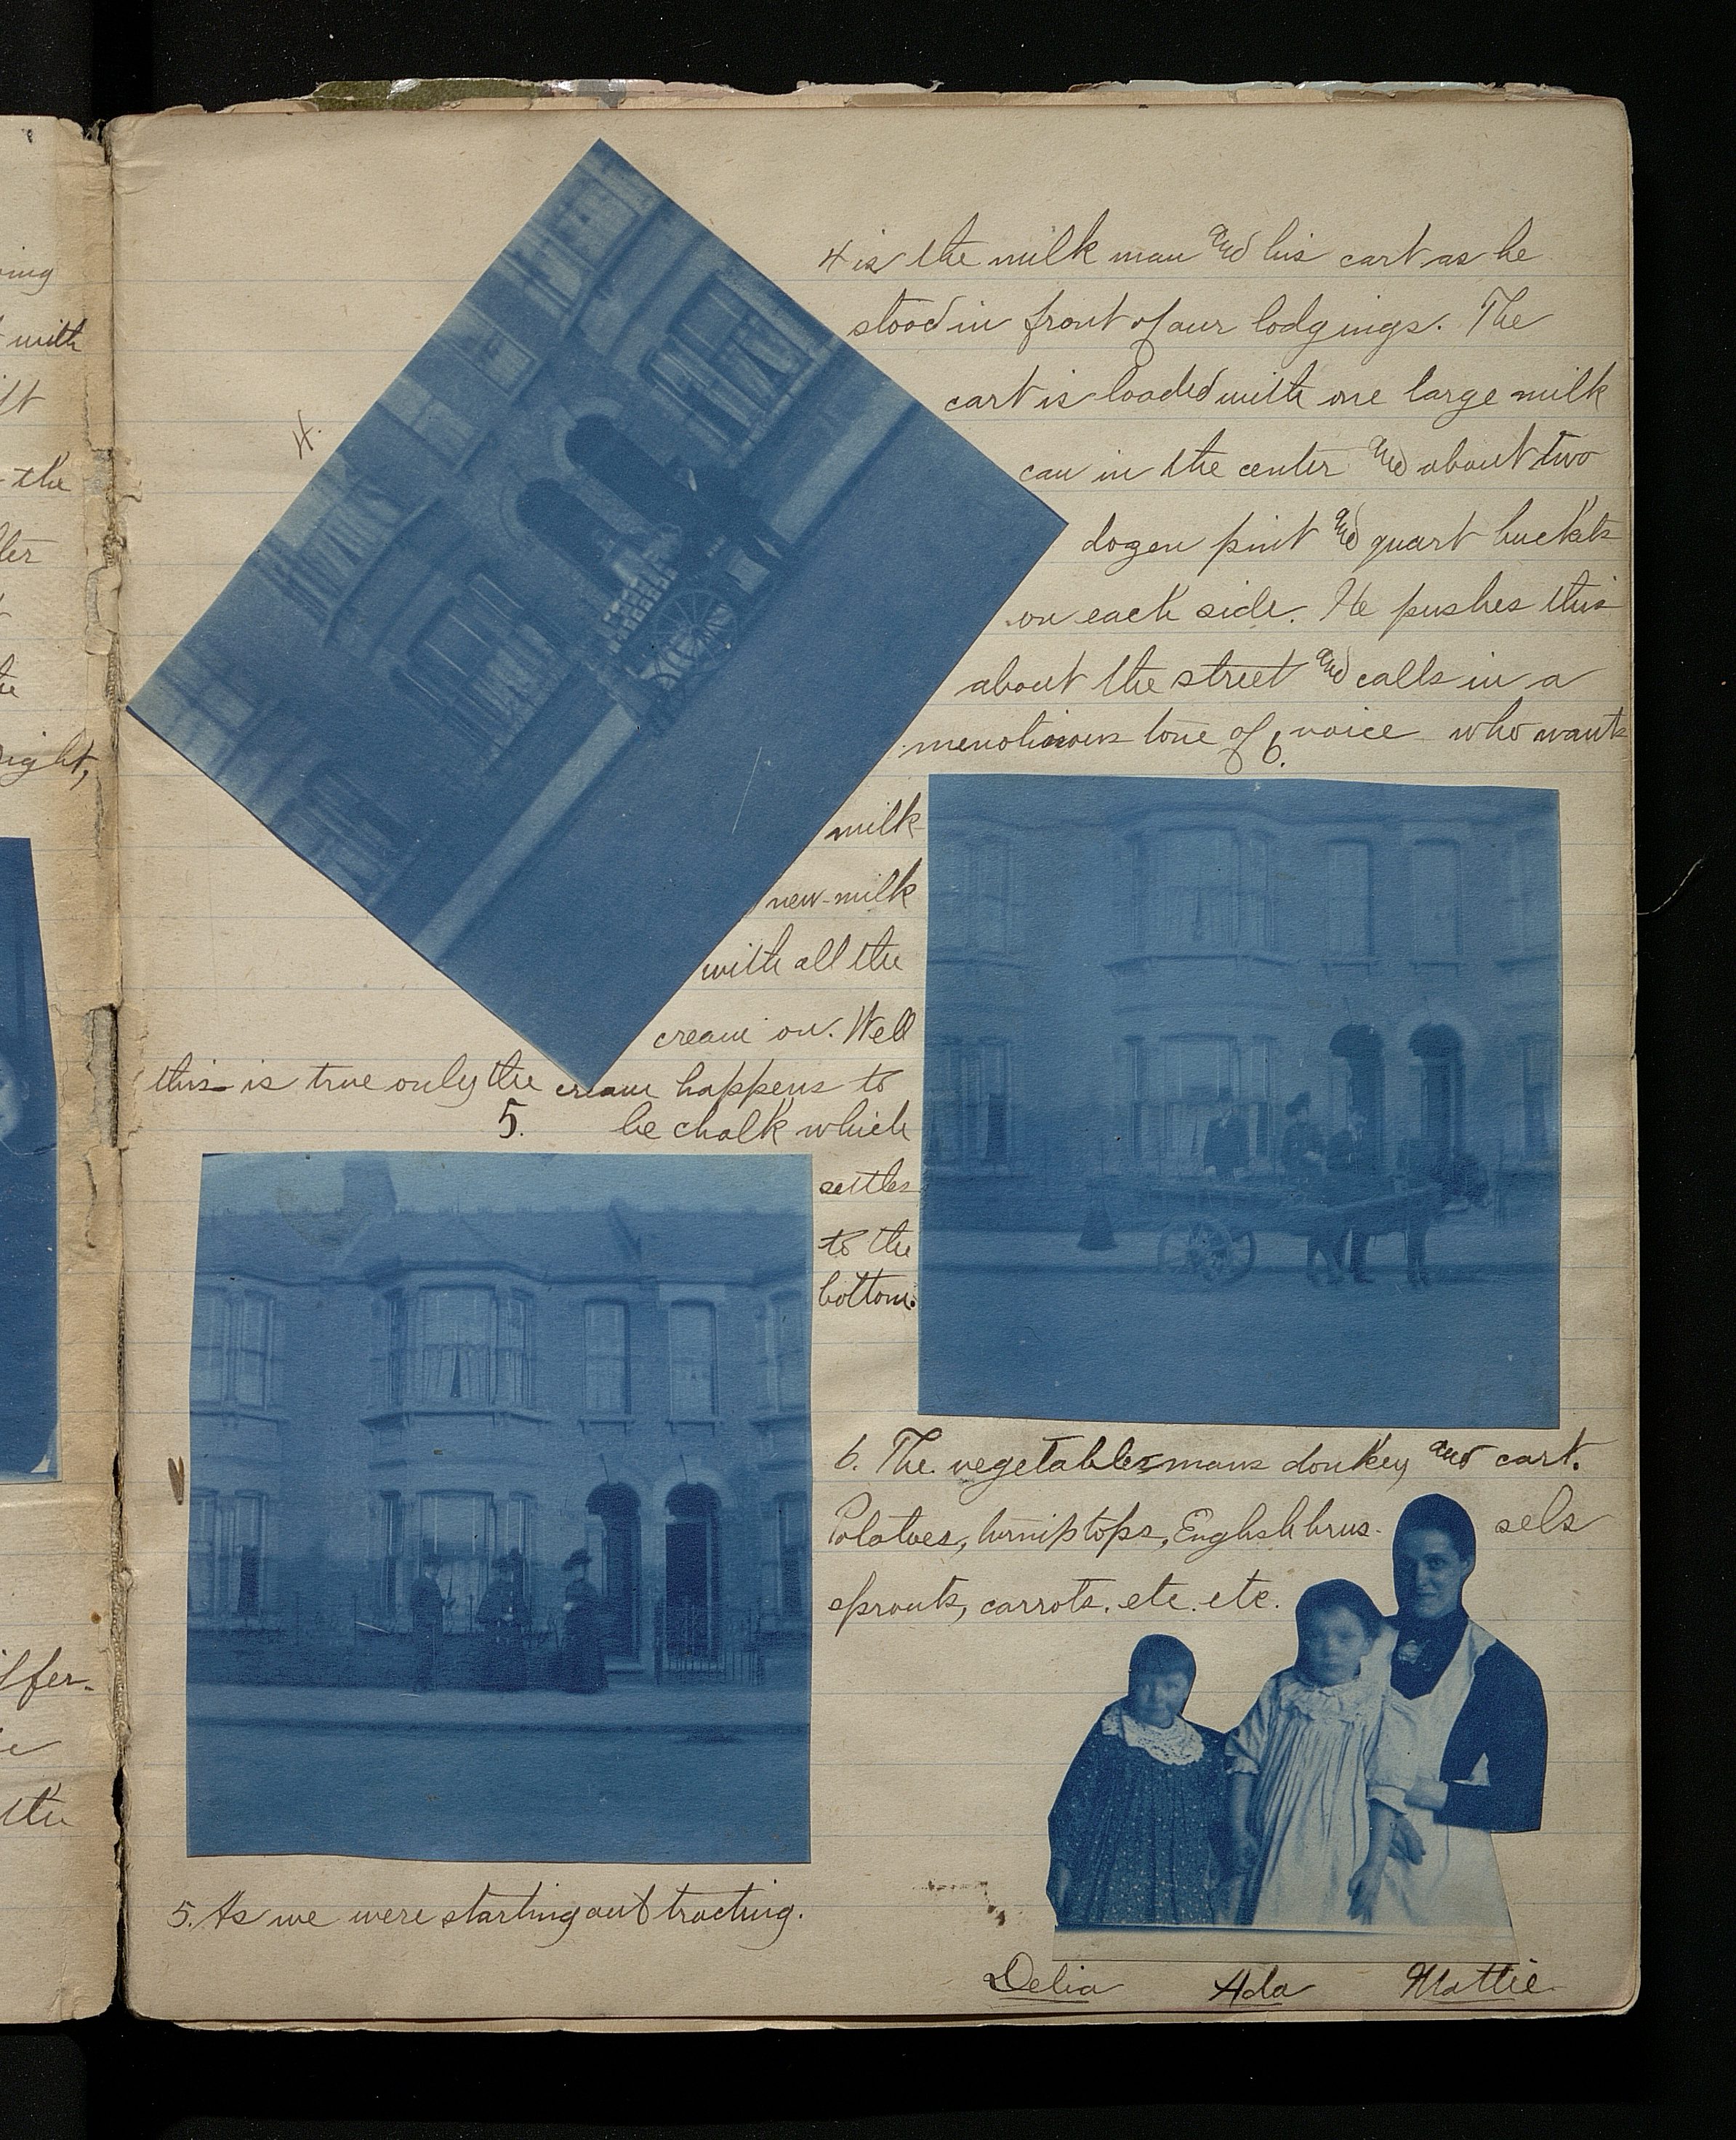 4.
4 is the milk man and his cart as he
stood in front of our lodgings. The
cart is loaded with one large milk
can in the center and about two
dozen pint and quart buckets
on each side. He pushes this
about the street and calls in a
tone of voice who wants
6.
milk
new milk
with all the
cream on. Well
this is true only the cream happens to
be chalk which
settles
to the
bottom.
5.
5. As we were starting out tracting.
6. The vegetables mans donkey and cart.
Potatoes, turnip tops, English brus- sels
sprouts, carrots. etc. etc.
Delia Ada Mattie
ing
with
ift
the
ight,
iffer-
the